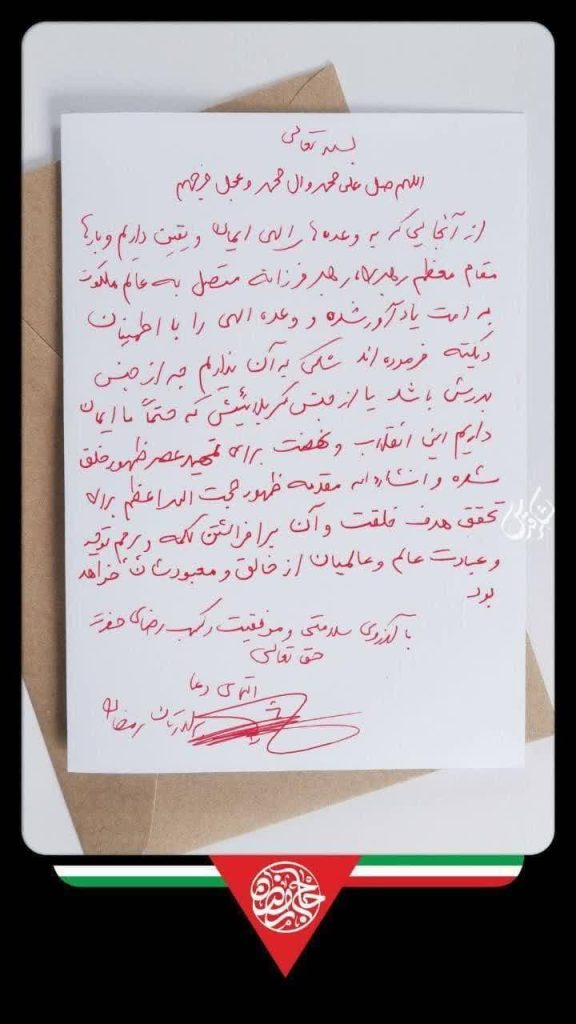 بسمه تعالی
اللهم صل علی محمد وآل محمد وعجل فرجهم
از آنجایی که به وعده های الهی ایمان و یقین داریم وبارها
مقام معظم رهبری، رهبر فرزانه متصل به عالم ملکوت
به امت یادآور شده و وعده الهی را با اطمینان
دیکته فرموده اند شکی به آن نداریم چه از جنس
بدرش باشد یا از جنس کربلائیش که حتماً ما ایمان
داریم این انقلاب و نهضت برای تمهید عصر ظهور خلق
شده و انشاءاله مقدمه ظهور حجت اله اعظم برای
تحقق هدف خلقت و آن برافراشتن کلمه و پرچم توحید
و عبادت عالم و عالمیان از خالق و معبودشان خواهد
بود
با آرزوی سلامتی و موفقیت و کسب رضای حضرت
حق تعالی
التماس دعا
رمضان
حاج رمضان